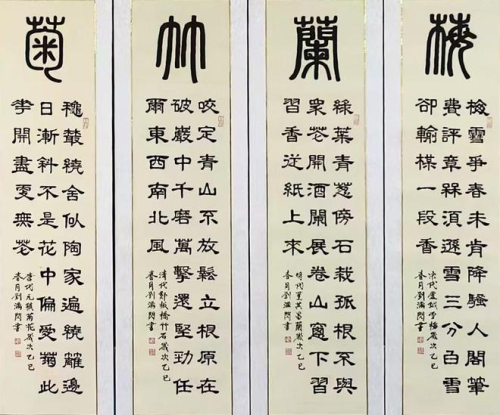 梅
梅雪爭春未肯降騷人閣筆
費評章槑須遜雪三分白雪
卻輸楳一段香
歲次乙巳
春月劉滿書
蘭
綠葉青蔥傍石栽孤根不與
衆花開酒闌展卷山窗下習
習香從紙上來
明代董其昌蘭歲次乙巳
春月劉滿書
竹
咬定青山不放鬆立根原在
破巖中千磨萬擊還堅勁任
爾東西南北風
清代鄭板橋竹石歲次乙巳
春月劉滿書
菊
穐叢繞舍似陶家遍繞籬邊
日漸斜不是花中偏愛菊此
開盡更無花
唐代元稹菊花歲次乙巳
春月劉滿書